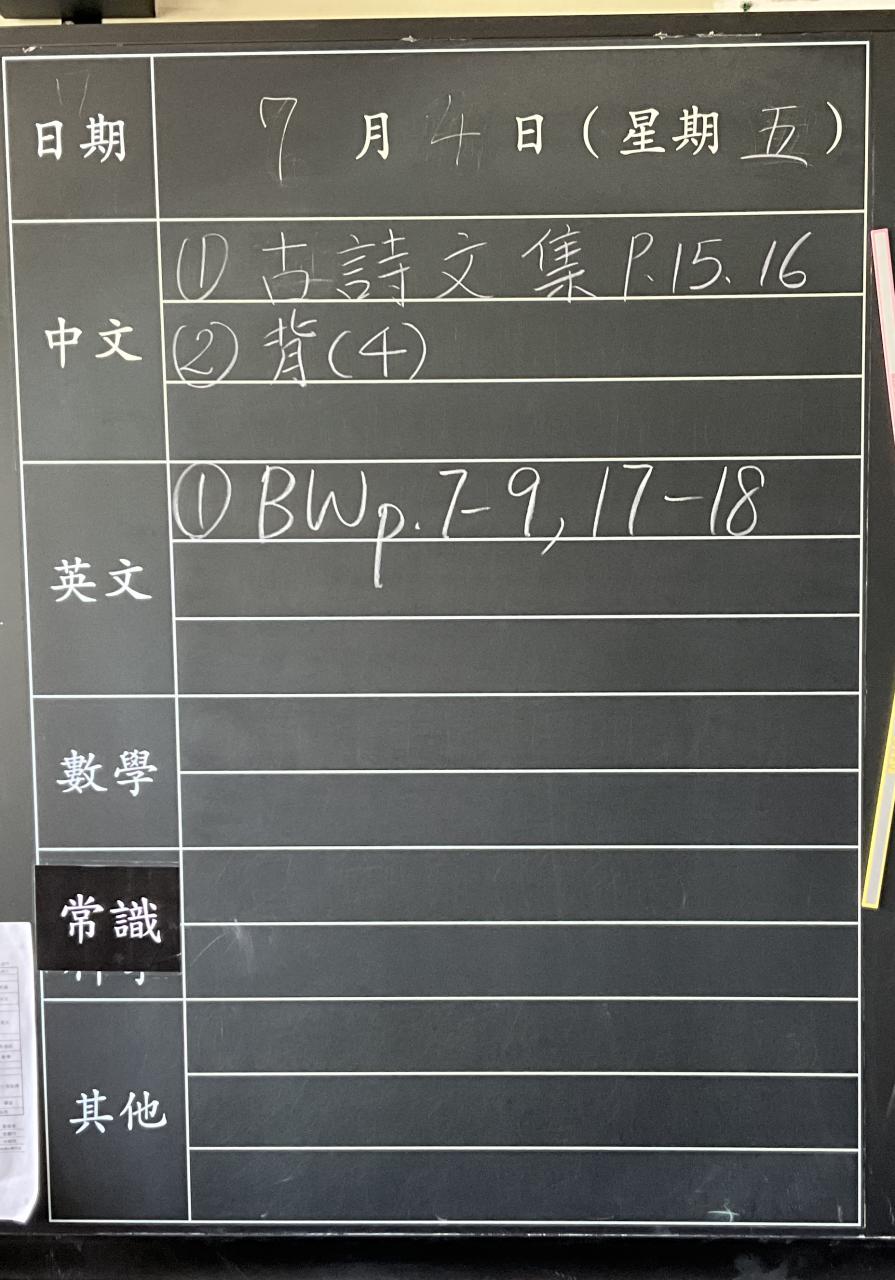 日期 7 月 4 日 ( 星期 五 )
中文
① 古詩文集 P.15.16
② 背(4)
英文
① BW p.7-9, 17-18
數學
常識
其他